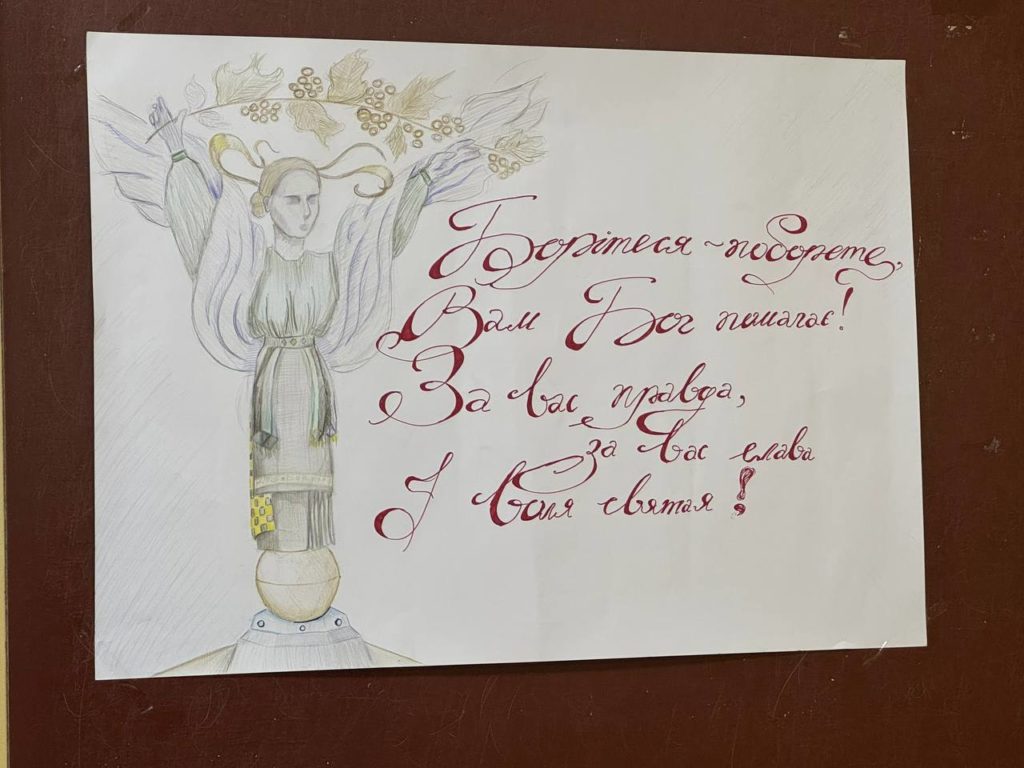 Борітеся ~ поборете,
Вам Бог помагає!
За вас правда,
за вас слава
І воля святая!